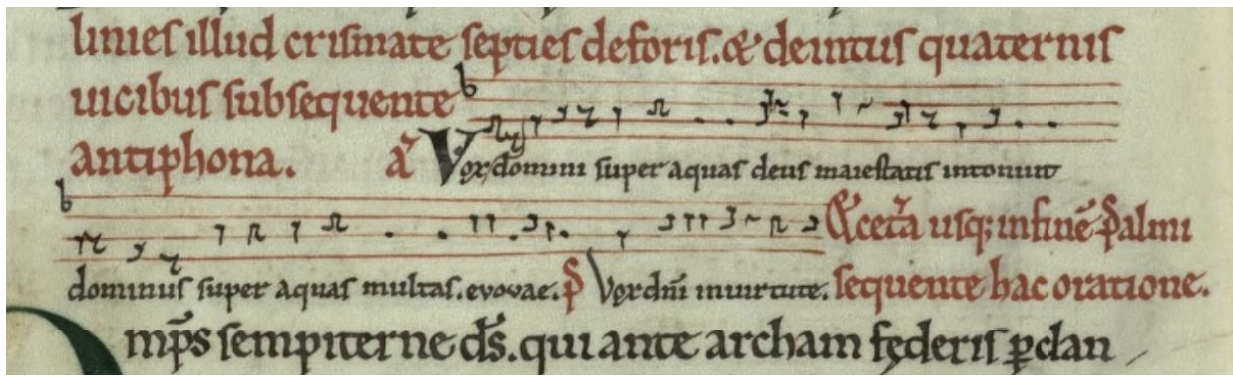 linies illud crismate septies deforis. & deintus quaternis
uicibus subsequente
antiphona. a͞ Vox domini super aquas deus maiestatis intonuit
dominus super aquas multas. evovae. p͞s Vox dn̄i inuirtute. & cet͛a usq; infinē psalmi
sequente hac oratione.
mp̄s sempiterne d̄s. qui ante archam fęderis ꝑclan